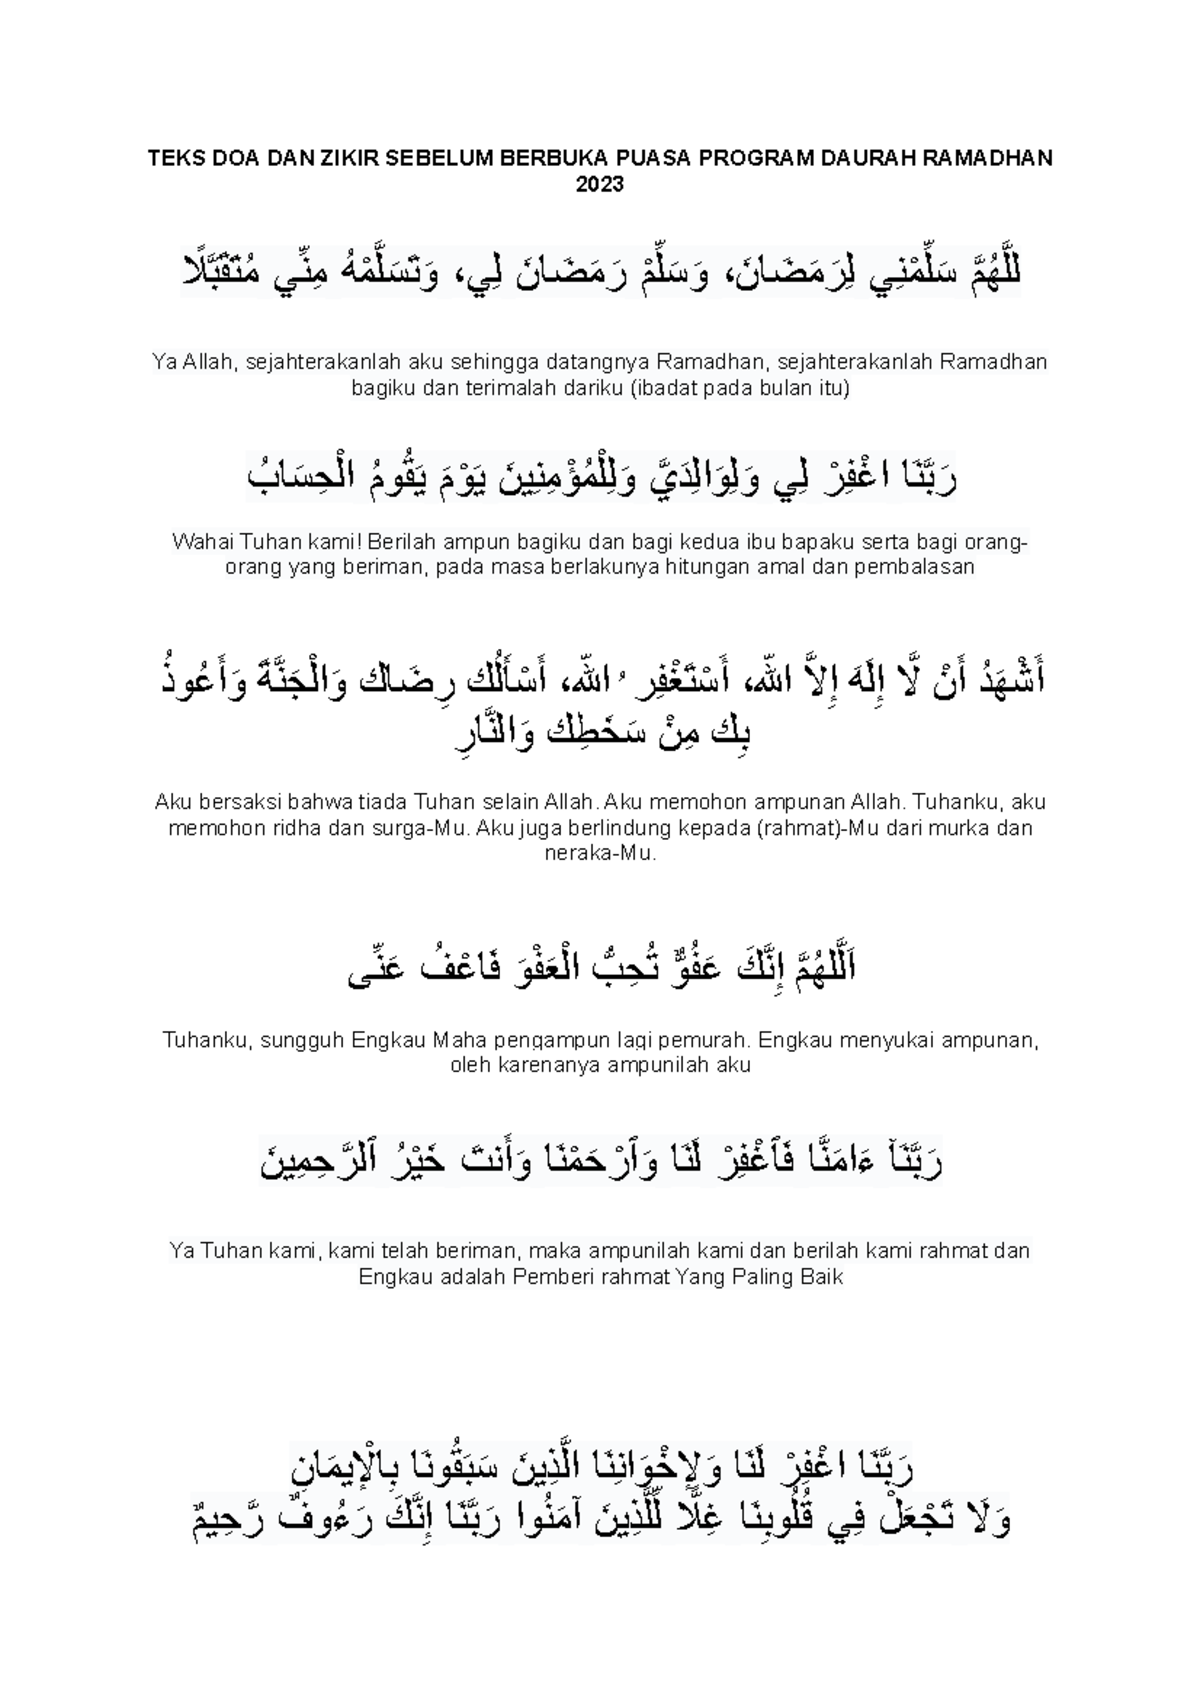 TEKS DOA DAN ZIKIR SEBELUM BERBUKA PUASA PROGRAM DAURAH RAMADHAN
2023
لَّلهُمَّ سَلِّمْنِي لِرَمَضَانَ، وَسَلِّمْ رَمَضَانَ لِي، وَتَسَلَّمْهُ مِنِّي مُتَقَبَّلًا
Ya Allah, sejahterakanlah aku sehingga datangnya Ramadhan, sejahterakanlah Ramadhan
bagiku dan terimalah dariku (ibadat pada bulan itu)
رَبَّنَا اغْفِرْ لِي وَلِوَالِدَيَّ وَلِلْمُؤْمِنِينَ يَوْمَ يَقُومُ الْحِسَابُ
Wahai Tuhan kami! Berilah ampun bagiku dan bagi kedua ibu bapaku serta bagi orang-
orang yang beriman, pada masa berlakunya hitungan amal dan pembalasan
أَشْهَدُ أَنْ لَّا إِلَهَ إِلَّا الله، أَسْتَغْفِر ُ الله، أَسْأَلُك رِضَاك وَالْجَنَّةَ وَأَعُوذُ
بِك مِنْ سَخَطِك وَالنَّارِ
Aku bersaksi bahwa tiada Tuhan selain Allah. Aku memohon ampunan Allah. Tuhanku, aku
memohon ridha dan surga-Mu. Aku juga berlindung kepada (rahmat)-Mu dari murka dan
neraka-Mu.
اَللَّهُمَّ إِنَّكَ عَفُوٌّ تُحِبُّ الْعَفْوَ فَاعْفُ عَنِّى
Tuhanku, sungguh Engkau Maha pengampun lagi pemurah. Engkau menyukai ampunan,
oleh karenanya ampunilah aku
رَبَّنَآ ءَامَنَّا فَٱغْفِرْ لَنَا وَٱرْحَمْنَا وَأَنتَ خَيْرُ ٱلرَّحِمِينَ
Ya Tuhan kami, kami telah beriman, maka ampunilah kami dan berilah kami rahmat dan
Engkau adalah Pemberi rahmat Yang Paling Baik
رَبَّنَا اغْفِرْ لَنَا وَلِإِخْوَانِنَا الَّذِينَ سَبَقُونَا بِالْإِيمَانِ
وَلَا تَجْعَلْ فِي قُلُوبِنَا غِلًّا لِّلَّذِينَ آمَنُوا رَبَّنَا إِنَّكَ رَءُوفٌ رَّحِيمٌ